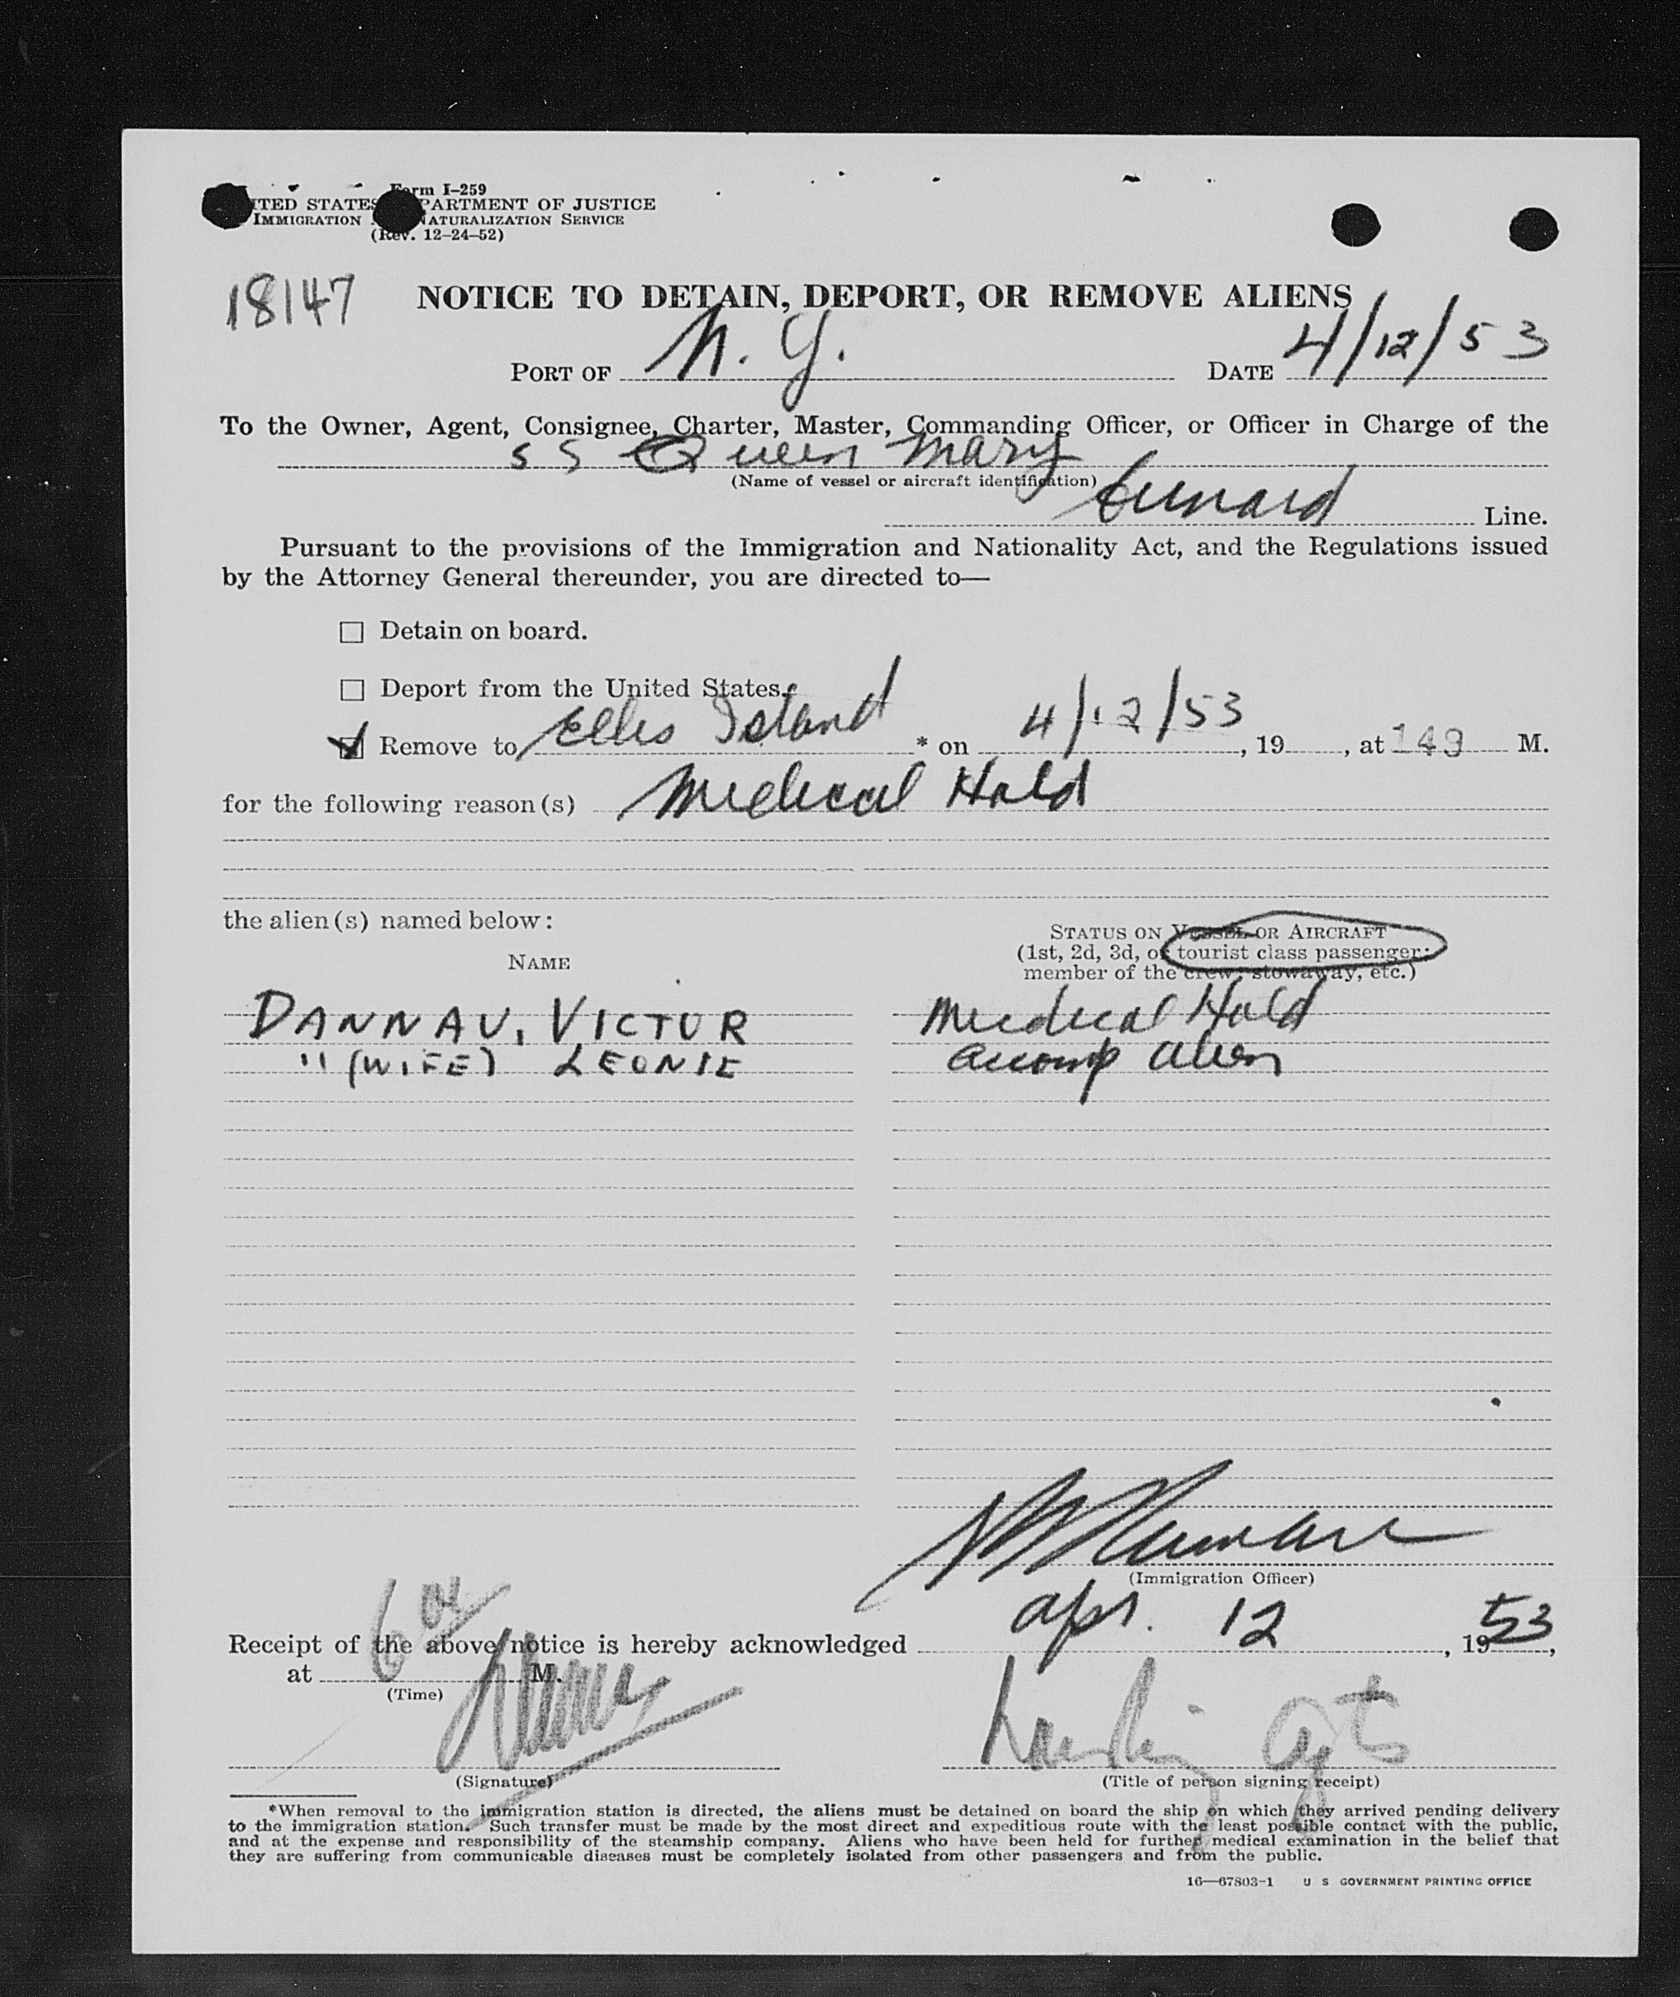 Form I-259
UNITED STATES DEPARTMENT OF JUSTICE
IMMIGRATION NATURALIZATION SERVICE
(Rev. 12-24-52)
18147
NOTICE TO DETAIN, DEPORT, OR REMOVE ALIENS
PORT OF N. Y. DATE 4/12/53
To the Owner, Agent, Consignee, Charter, Master, Commanding Officer, or Officer in Charge of the
SS Queen Mary
(Name of vessel or aircraft identification)
Cunard Line.
Pursuant to the provisions of the Immigration and Nationality Act, and the Regulations issued
by the Attorney General thereunder, you are directed to—
☐ Detain on board.
☐ Deport from the United States.
☑ Remove to Ellis Island * on 4/12/53, 19, at 149 M.
for the following reason(s) Medical Hold
the alien(s) named below:
STATUS ON VESSEL OR AIRCRAFT
(1st, 2d, 3d, or tourist class passenger;
member of the crew; stowaway, etc.)
NAME
DANNAU, VICTOR Medical Hold
" (WIFE) LEONIE Accomp Alien
(Immigration Officer)
Receipt of the above notice is hereby acknowledged Apr. 12, 1953,
at M.
(Time)
Landing Agts
(Signature) (Title of person signing receipt)
*When removal to the immigration station is directed, the aliens must be detained on board the ship on which they arrived pending delivery
to the immigration station. Such transfer must be made by the most direct and expeditious route with the least possible contact with the public,
and at the expense and responsibility of the steamship company. Aliens who have been held for further medical examination in the belief that
they are suffering from communicable diseases must be completely isolated from other passengers and from the public.
16—67803-1 U S GOVERNMENT PRINTING OFFICE